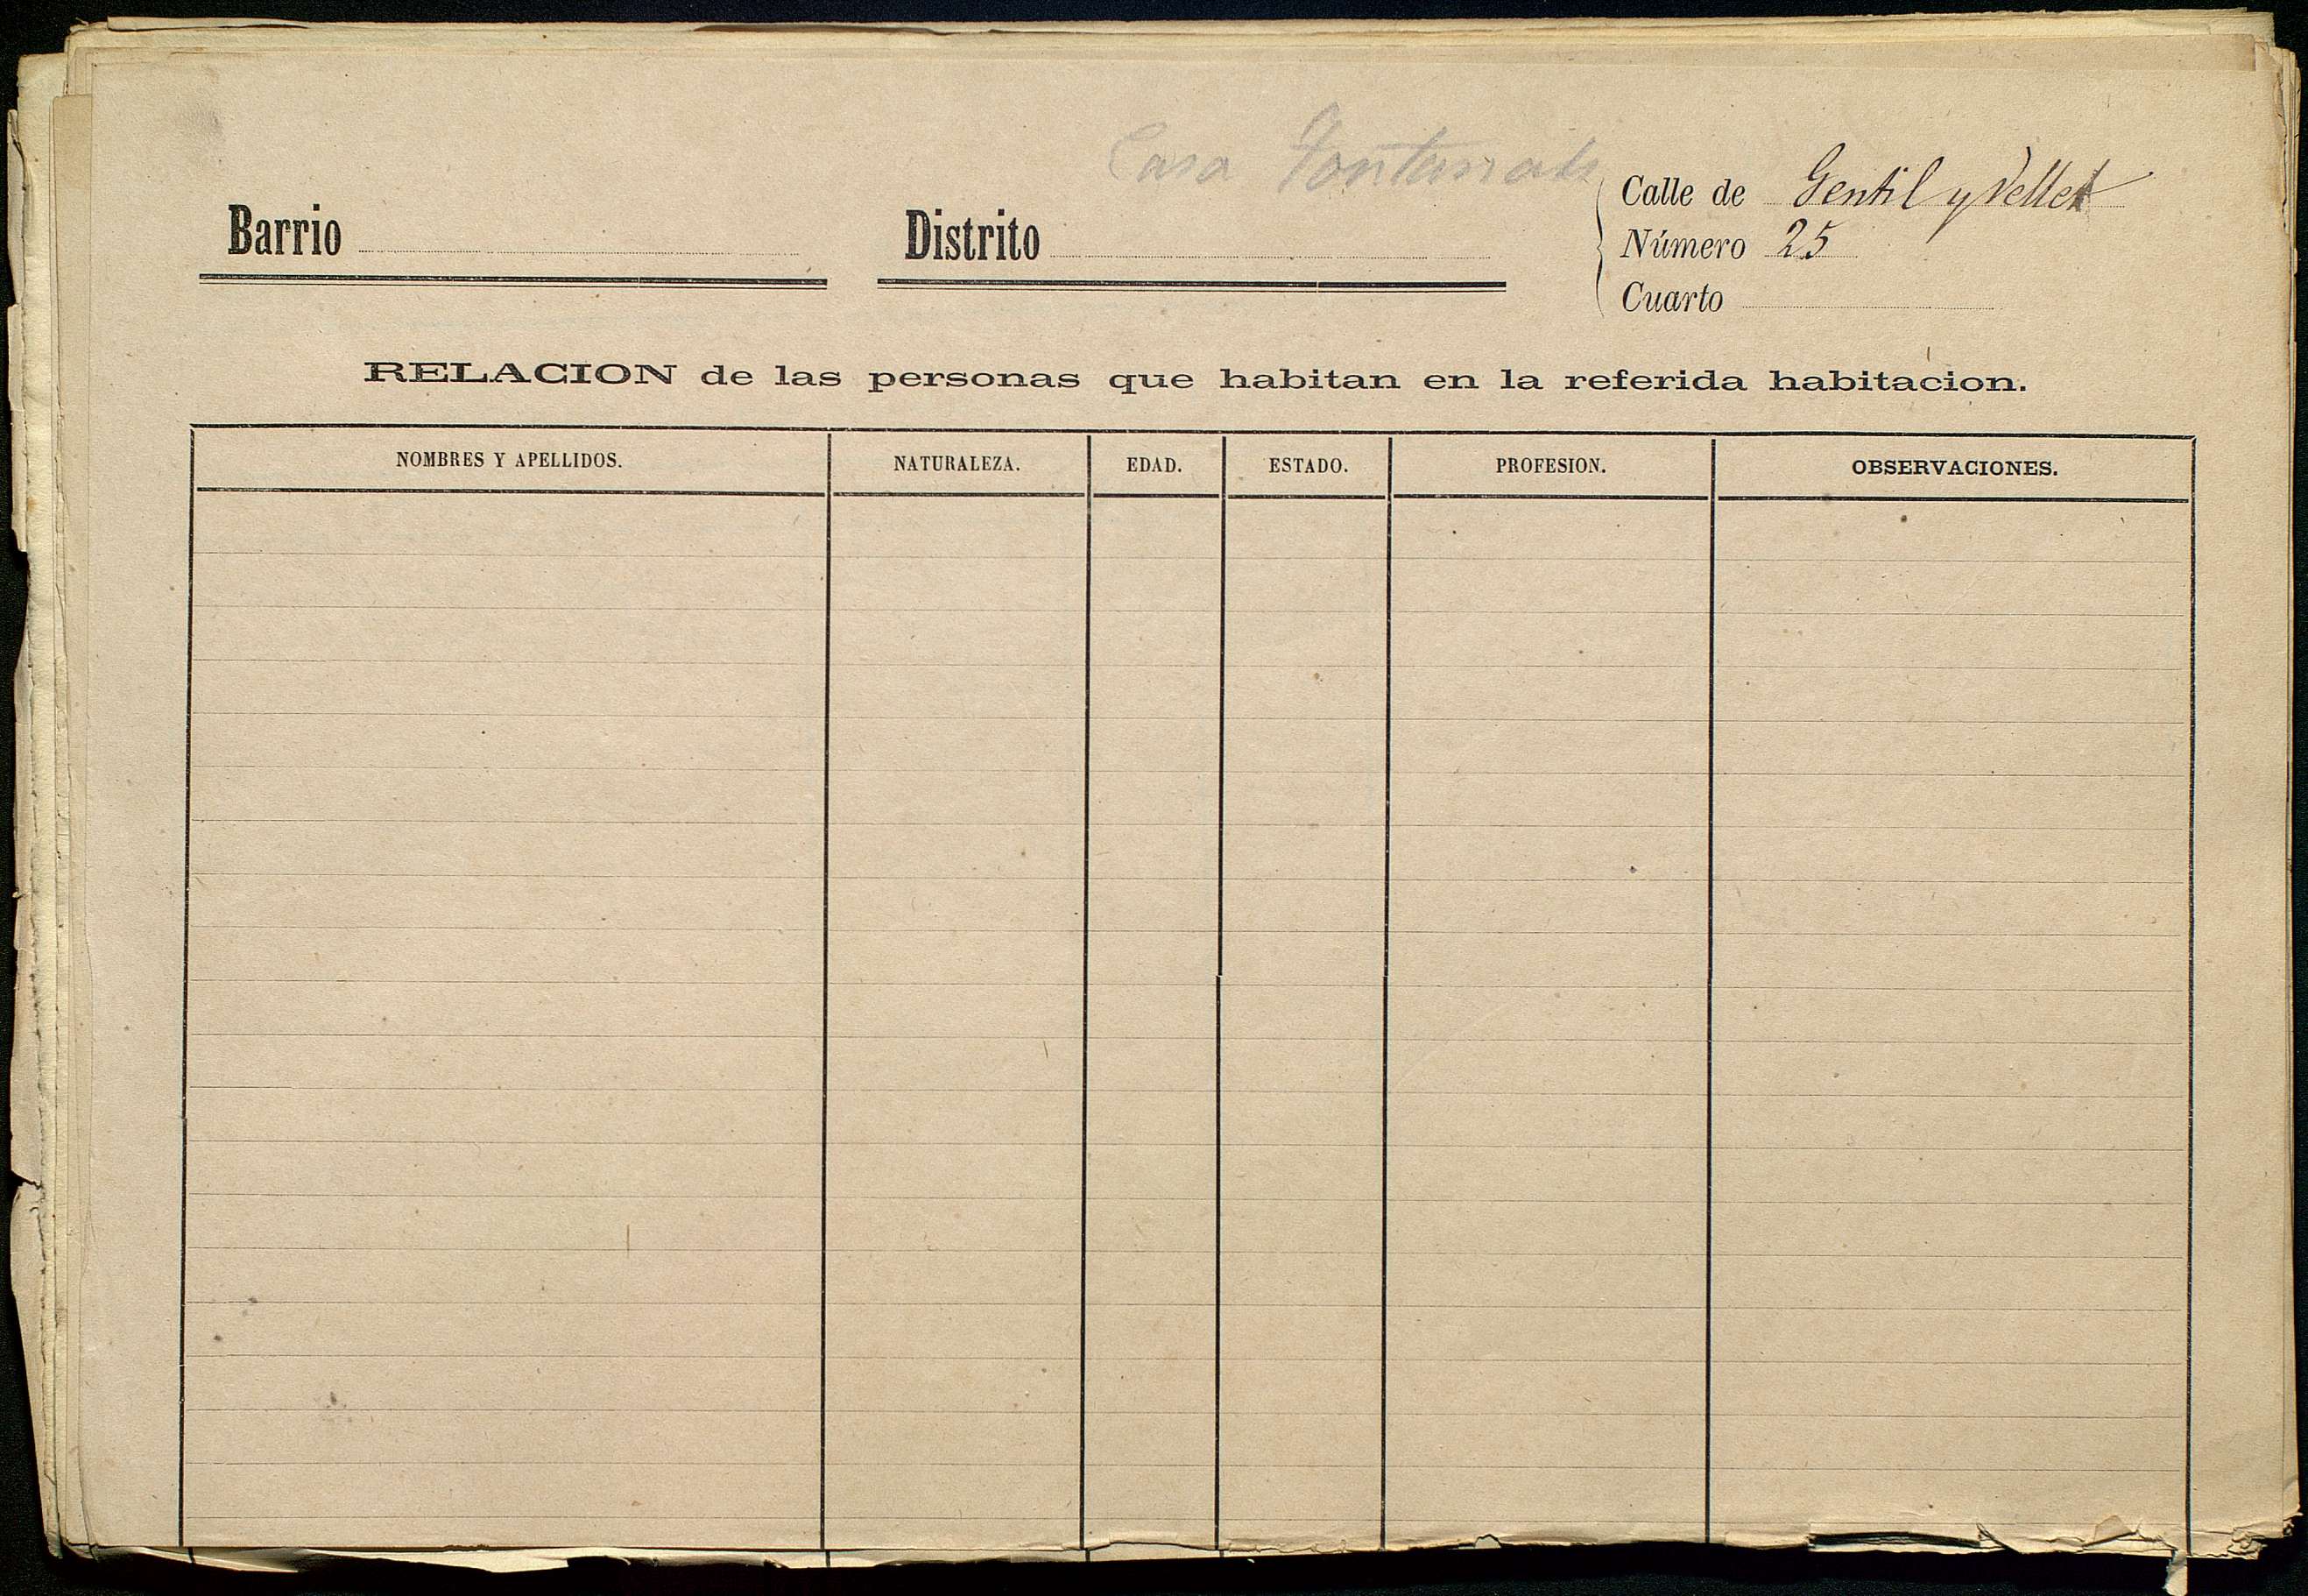 Casa Fontanals
Barrio
Distrito
Calle de Gentil y Vellet
Número 25
Cuarto
RELACION de las personas que habitan en la referida habitacion.
NOMBRES Y APELLIDOS. NATURALEZA. EDAD. ESTADO. PROFESION. OBSERVACIONES.